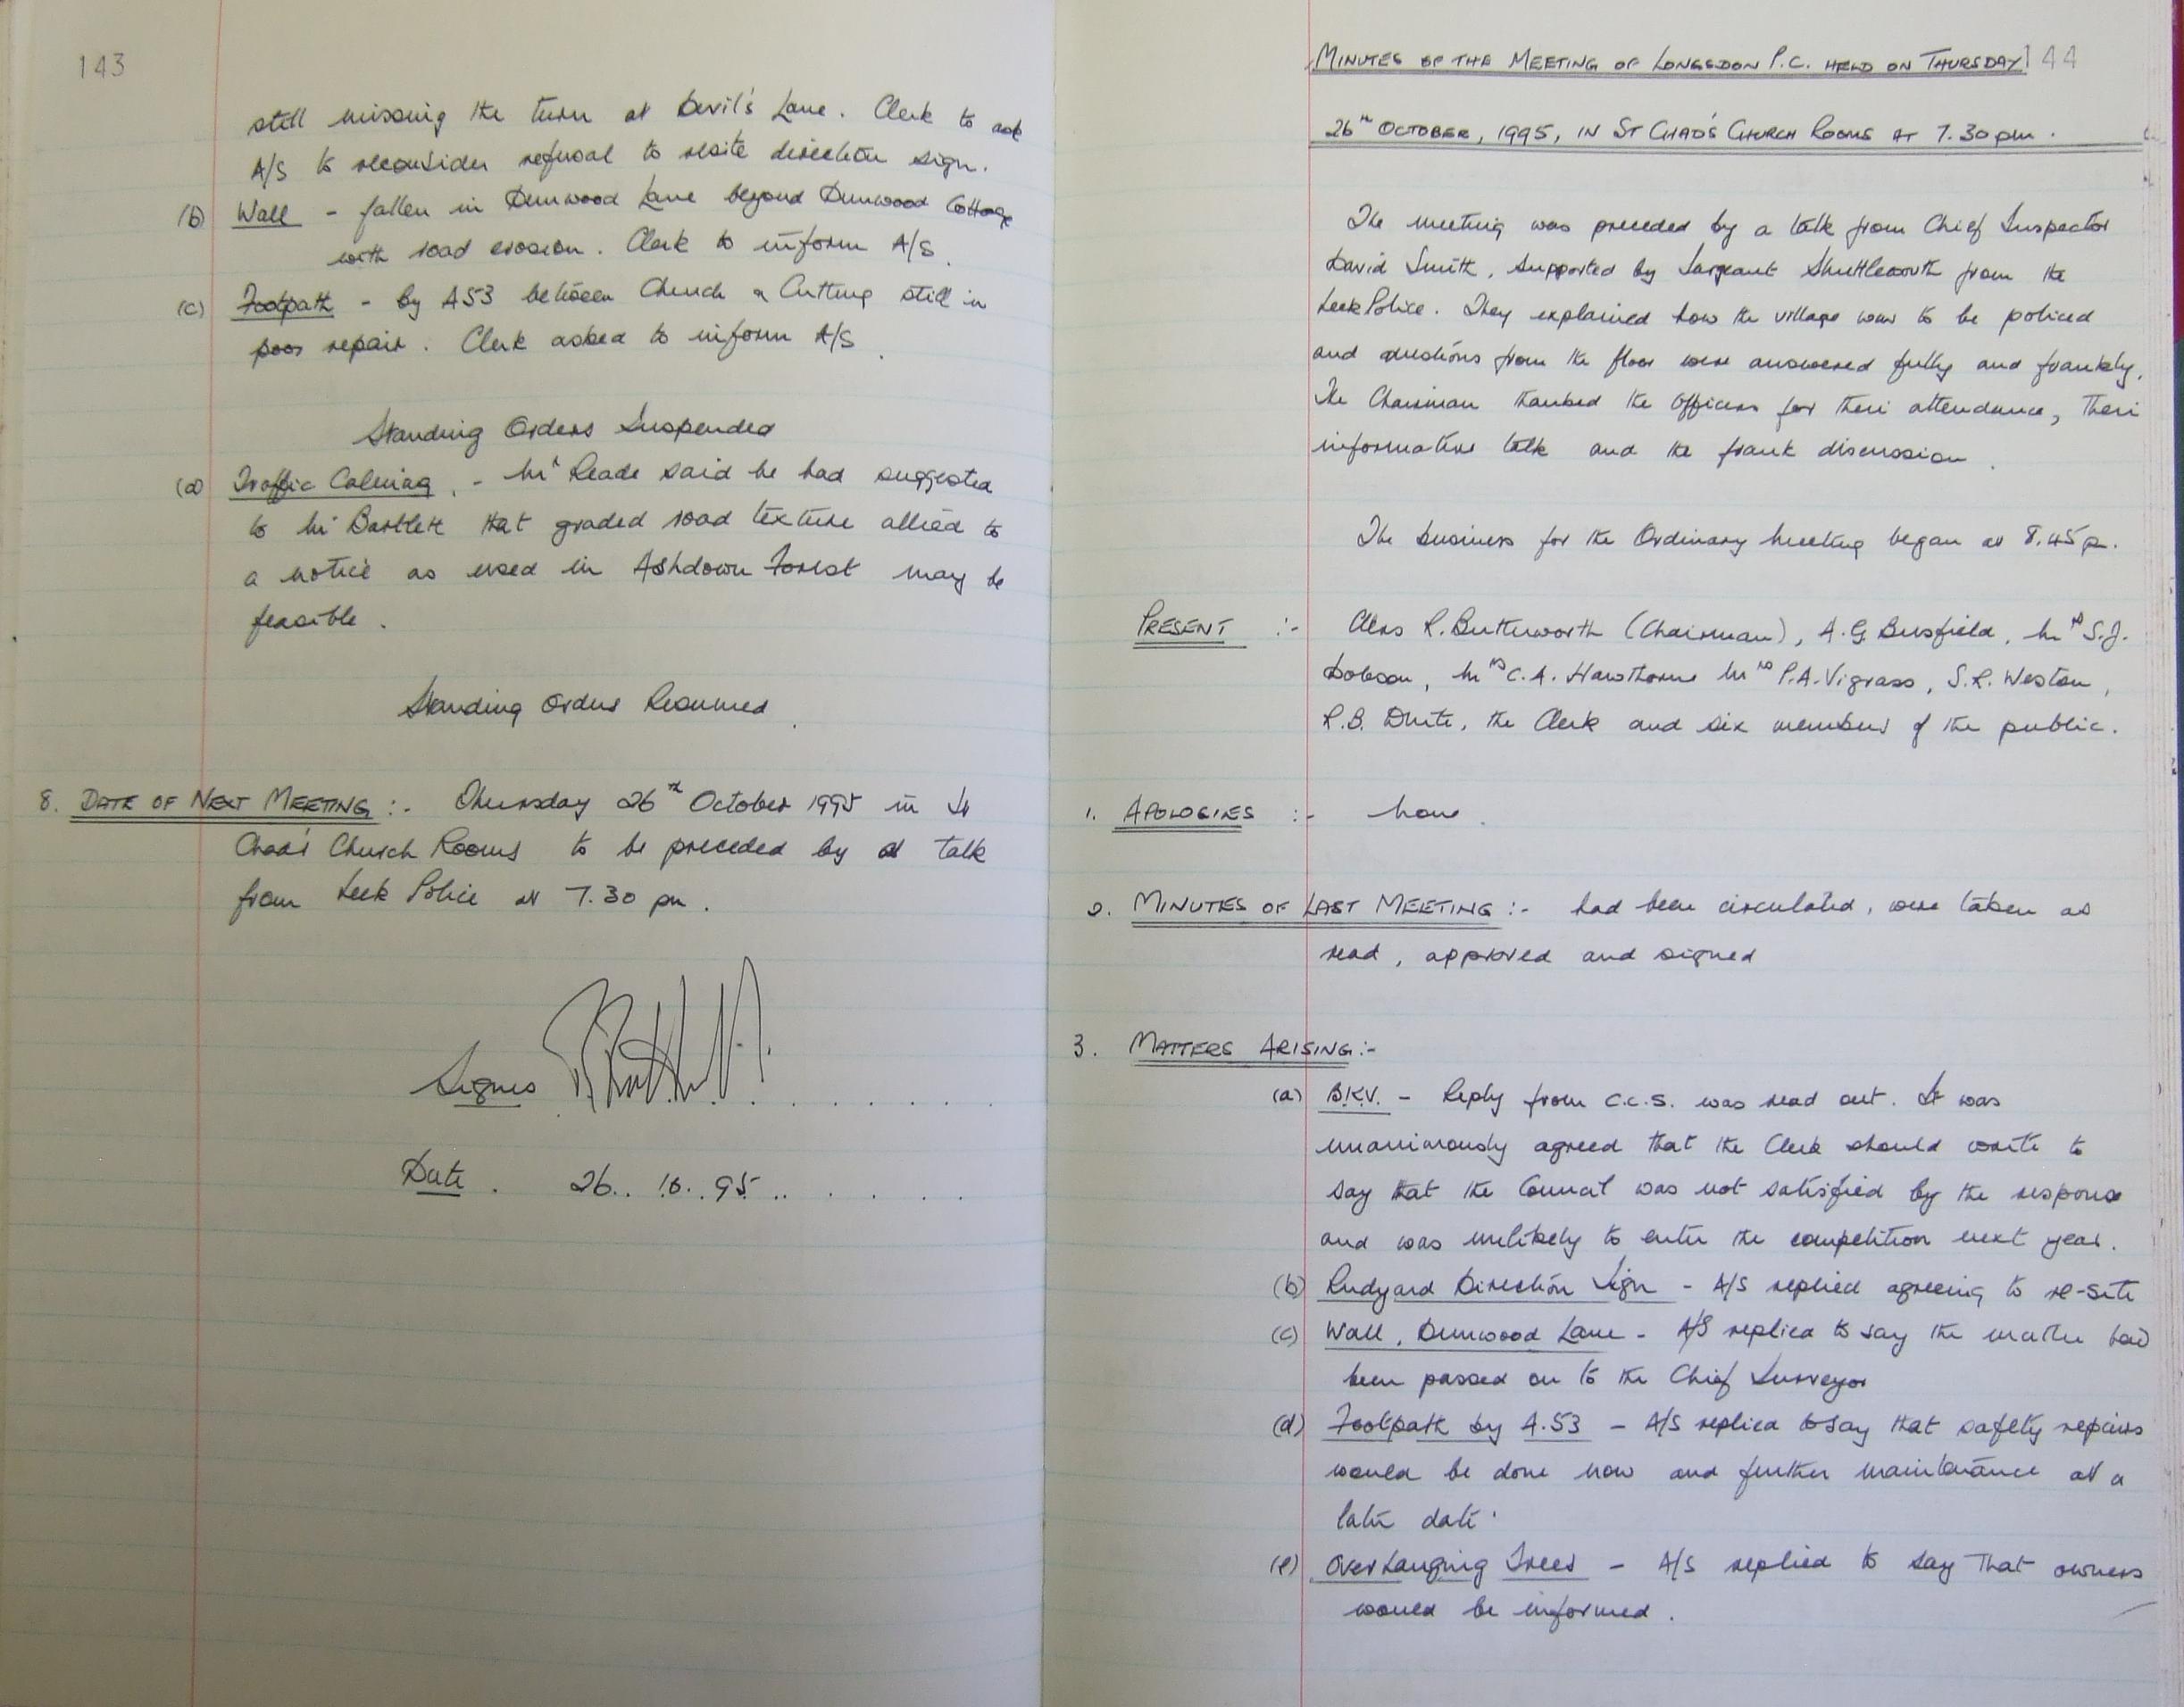 143
still missing the turn at Devil's Lane. Clerk to ask
A/S to reconsider refusal to resite direction sign.
(b) Wall - fallen in Dunwood Lane beyond Dunwood Cottage
with road erosion. Clerk to inform A/S.
(c) Footpath - by A53 between Church & Cutting still in
poor repair. Clerk asked to inform A/S.
Standing Orders Suspended
(d) Traffic Calming. - Mr Reade said he had suggested
to Mr Bartlett that graded road texture allied to
a notice as used in Ashdown Forest may be
feasible.
Standing Orders Resumed.
8. DATE OF NEXT MEETING :- Thursday 26th October 1995 in St
Chad's Church Rooms to be preceded by a talk
from Leek Police at 7.30 pm.
Signed
Date. 26.. 10.. 95.. . . . .
MINUTES OF THE MEETING OF LONGSDON P.C. HELD ON THURSDAY 144
26th OCTOBER, 1995, IN ST CHAD'S CHURCH ROOMS AT 7.30pm.
The meeting was preceded by a talk from Chief Inspector
David Smith, supported by Sargeant Shuttleworth from the
Leek Police. They explained how the village was to be policed
and questions from the floor were answered fully and frankly.
The Chairman thanked the Officers for their attendance, their
informative talk and the frank discussion.
The business for the Ordinary Meeting began at 8.45p.
PRESENT :- Cllrs R. Butterworth (Chairman), A.G. Busfield, Mrs S.J.
Dobson, Mrs C.A. Hawthorne Mrs P.A. Vigrass, S.R. Weston,
R.B. White, the Clerk and six members of the public.
1. APOLOGIES :- None.
2. MINUTES OF LAST MEETING :- had been circulated, were taken as
read, approved and signed
3. MATTERS ARISING:-
(a) B.K.V. - Reply from C.C.S. was read out. It was
unanimously agreed that the Clerk should write to
say that the Council was not satisfied by the response
and was unlikely to enter the competition next year.
(b) Rudyard Direction Sign - A/S replied agreeing to re-site
(c) Wall, Dunwood Lane - A/S replied to say the matter had
been passed on to the Chief Surveyor
(d) Footpath by A.53 - A/S replied to say that safety repairs
would be done now and further maintenance at a
later date.
(e) Overhanging Trees - A/S replied to say that owners
would be informed.